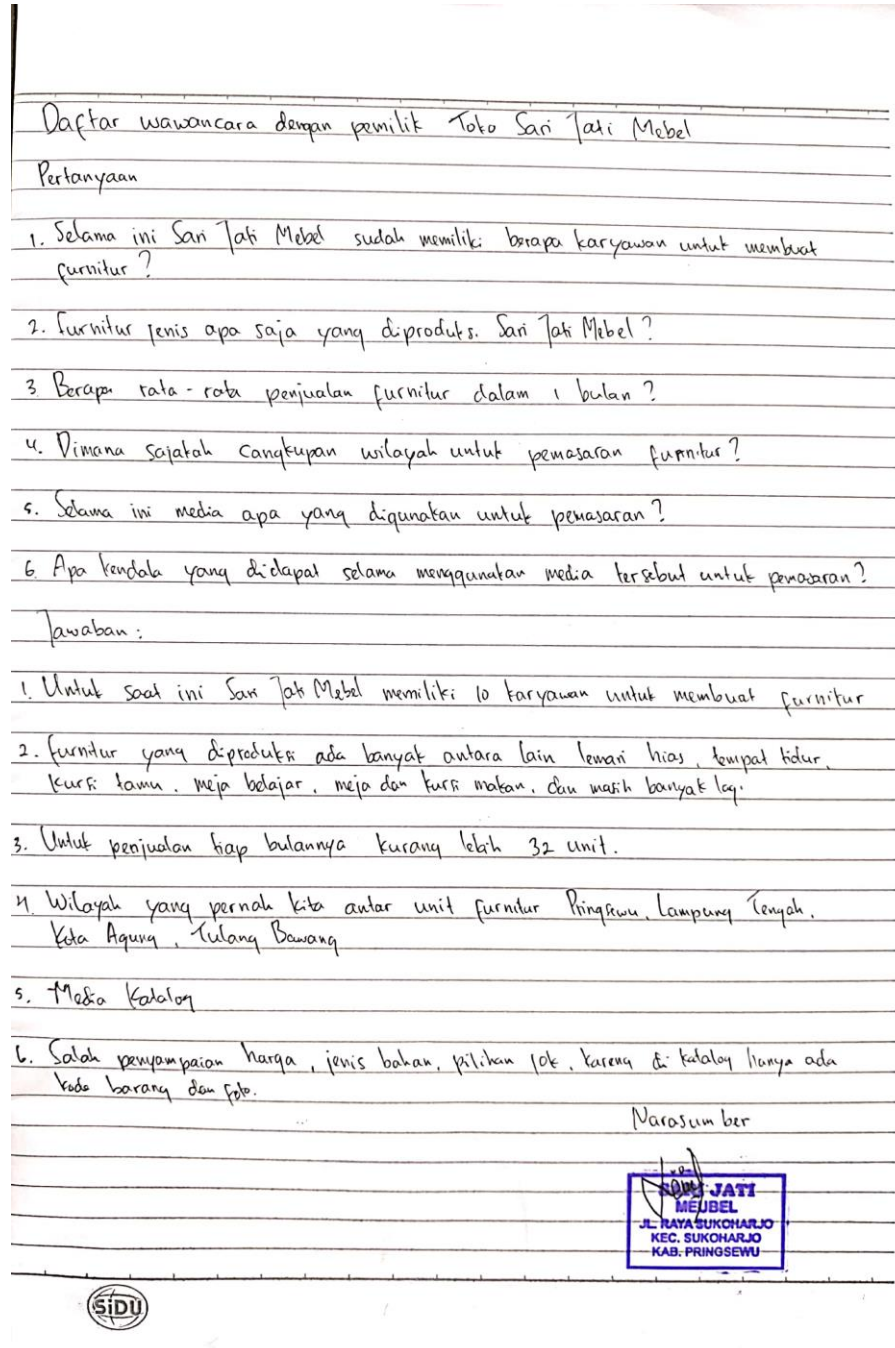 Daftar wawancara dengan pemilik Toko Sari Jati Mebel
Pertanyaan
1. Selama ini Sari Jati Mebel sudah memiliki berapa karyawan untuk membuat
furnitur?
2. furnitur jenis apa saja yang diproduksi Sari Jati Mebel?
3 Berapa rata-rata penjualan furnitur dalam 1 bulan?
4. Dimana sajakah cangkupan wilayah untuk pemasaran furnitur?
5. Selama ini media apa yang digunakan untuk pemasaran?
6. Apa kendala yang didapat selama menggunakan media tersebut untuk pemasaran?
Jawaban:
1. Untuk saat ini Sari Jati Mebel memiliki 10 karyawan untuk membuat furnitur
2. furnitur yang diproduksi ada banyak antara lain lemari hias, tempat tidur,
kursi tamu, meja belajar, meja dan kursi makan, dan masih banyak lagi.
3. Untuk penjualan tiap bulannya kurang lebih 32 unit.
4. Wilayah yang pernah kita antar unit furnitur Pringsewu, Lampung Tengah,
Kota Agung, Tulang Bawang
5. Media Katalog
6. Salah penyampaian harga, jenis bahan, pilihan jok, karena di katalog hanya ada
kode barang dan foto.
Narasumber
JATI
MEUBEL
JL. RAYA SUKOHARJO
KEC. SUKOHARJO
KAB. PRINGSEWU
SiDU